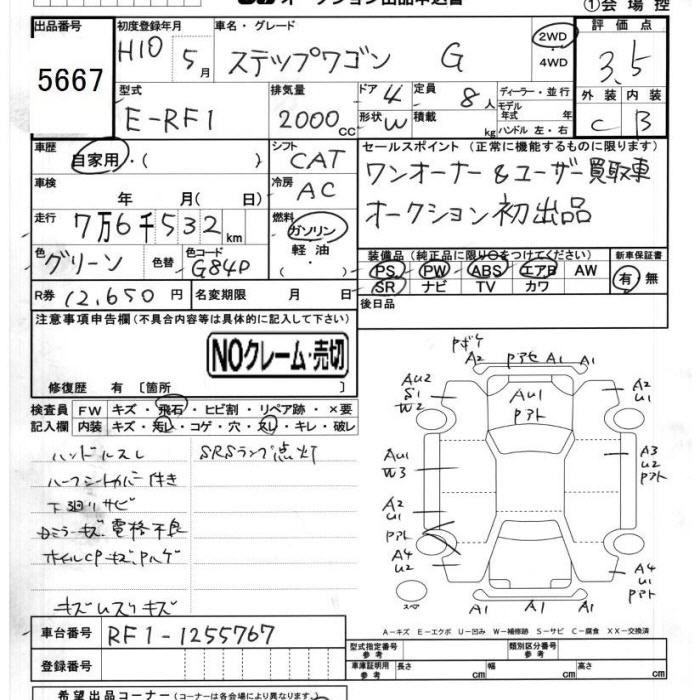 ①会場控
出品番号 初度登録年月 車名・グレード 評価点
5667 H10 5月 ステップワゴン G 2WD・4WD 3.5
型式 排気量 ドア 4 定員 8人 ディーラー・並行 外装 内装
E-RF1 2000cc 形状 W 積載 kg モデル年式 年 C B
ハンドル 左・右
車歴 自家用・( ) シフト CAT セールスポイント(正常に機能するものに限ります)
車検 年 月(日) 冷房 AC ワンオーナー&ユーザー買取車
走行 7万6千532km 燃料 ガソリン・軽油・ オークション初出品
色 グリーン 色替 色コード G84P 装備品(純正品に限り○をつけてください) 新車保証書
PS PW ABS エアB AW 有・無
SR ナビ TV カワ
R券 12,650円 名変期限 月 日 後日品
注意事項申告欄(不具合内容等は具体的に記入して下さい)
NOクレーム・売切
修復歴 有[箇所 ]
検査員記入欄 FW キズ・飛石・ヒビ割・リペア跡・×要
内装 キズ・汚レ・コゲ・穴・スレ・キレ・破レ
ハンドルスレ SRSランプ点灯
ハーフシートカバー付き
下廻リサビ
Dミラーキズ、電格不良
ホイルCPキズ、Pハゲ
キズ
A2 A1 A1
AU1
Pアト
AU2
S1
W2
A2
U1
AU1
W3
A3
U2
Pアト
A2
U1
Pアト
A4
U2
A4
U1
Pアト
スペア
A−キズ E−エクボ U−凹み W−補修跡 S−サビ C−腐食 XX−交換済
車台番号 RF1-1255767
登録番号
型式指定番号 参考 類別区分番号 参考
車庫証明用 参考 長さ cm 幅 cm 高さ cm
希望出品コーナー(コーナーは各会場により異なります。)